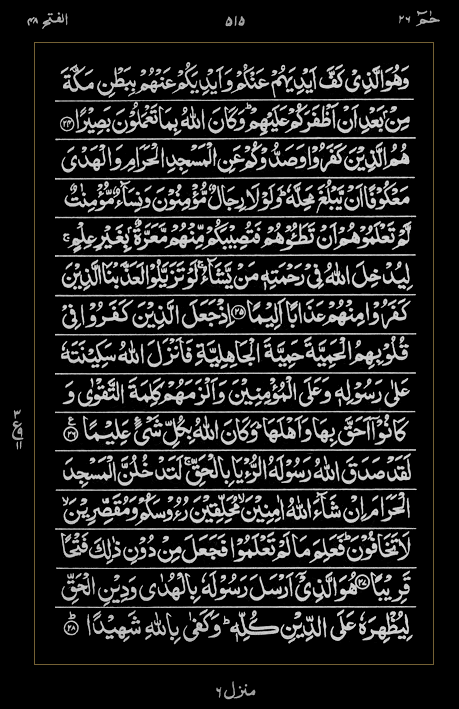 الفتح ٤٨
٥١٥
حٰمٓ ٢٦
وَهُوَ الَّذِىْ كَفَّ اَيْدِيَهُمْ عَنْكُمْ وَاَيْدِيَكُمْ عَنْهُمْ بِبَطْنِ مَكَّةَ
مِنْۢ بَعْدِ اَنْ اَظْفَرَكُمْ عَلَيْهِمْ ؕ وَكَانَ اللّٰهُ بِمَا تَعْمَلُوْنَ بَصِيْرًا ۝۲۴
هُمُ الَّذِيْنَ كَفَرُوْا وَصَدُّوْكُمْ عَنِ الْمَسْجِدِ الْحَرَامِ وَالْهَدْىَ
مَعْكُوْفًا اَنْ يَّبْلُغَ مَحِلَّهٗ ؕ وَلَوْلَا رِجَالٌ مُّؤْمِنُوْنَ وَنِسَآءٌ مُّؤْمِنٰتٌ
لَّمْ تَعْلَمُوْهُمْ اَنْ تَطَـــُٔوْهُمْ فَتُصِيْبَكُمْ مِّنْهُمْ مَّعَرَّةٌۢ بِغَيْرِ عِلْمٍ ۚ
لِيُدْخِلَ اللّٰهُ فِىْ رَحْمَتِهٖ مَنْ يَّشَآءُ ۚ لَوْ تَزَيَّلُوْا لَعَذَّبْنَا الَّذِيْنَ
كَفَرُوْا مِنْهُمْ عَذَابًا اَلِيْمًا ۝۲۵ اِذْ جَعَلَ الَّذِيْنَ كَفَرُوْا فِىْ
قُلُوْبِهِمُ الْحَمِيَّةَ حَمِيَّةَ الْجَاهِلِيَّةِ فَاَنْزَلَ اللّٰهُ سَكِيْنَتَهٗ
عَلٰى رَسُوْلِهٖ وَعَلَى الْمُؤْمِنِيْنَ وَاَلْزَمَهُمْ كَلِمَةَ التَّقْوٰى وَ
كَانُوْۤا اَحَقَّ بِهَا وَاَهْلَهَا ؕ وَكَانَ اللّٰهُ بِكُلِّ شَىْءٍ عَلِيْمًا ۝۲۶ ع
٣
ع ٩
١١
لَقَدْ صَدَقَ اللّٰهُ رَسُوْلَهُ الرُّءْيَا بِالْحَقِّ ۚ لَتَدْخُلُنَّ الْمَسْجِدَ
الْحَرَامَ اِنْ شَآءَ اللّٰهُ اٰمِنِيْنَ ۙ مُحَلِّقِيْنَ رُءُوْسَكُمْ وَمُقَصِّرِيْنَ ۙ
لَا تَخَافُوْنَ ؕ فَعَلِمَ مَا لَمْ تَعْلَمُوْا فَجَعَلَ مِنْ دُوْنِ ذٰلِكَ فَتْحًا
قَرِيْبًا ۝۲۷ هُوَ الَّذِىْۤ اَرْسَلَ رَسُوْلَهٗ بِالْهُدٰى وَدِيْنِ الْحَقِّ
لِيُظْهِرَهٗ عَلَى الدِّيْنِ كُلِّهٖ ؕ وَكَفٰى بِاللّٰهِ شَهِيْدًا ؕ۝۲۸
منزل ٦